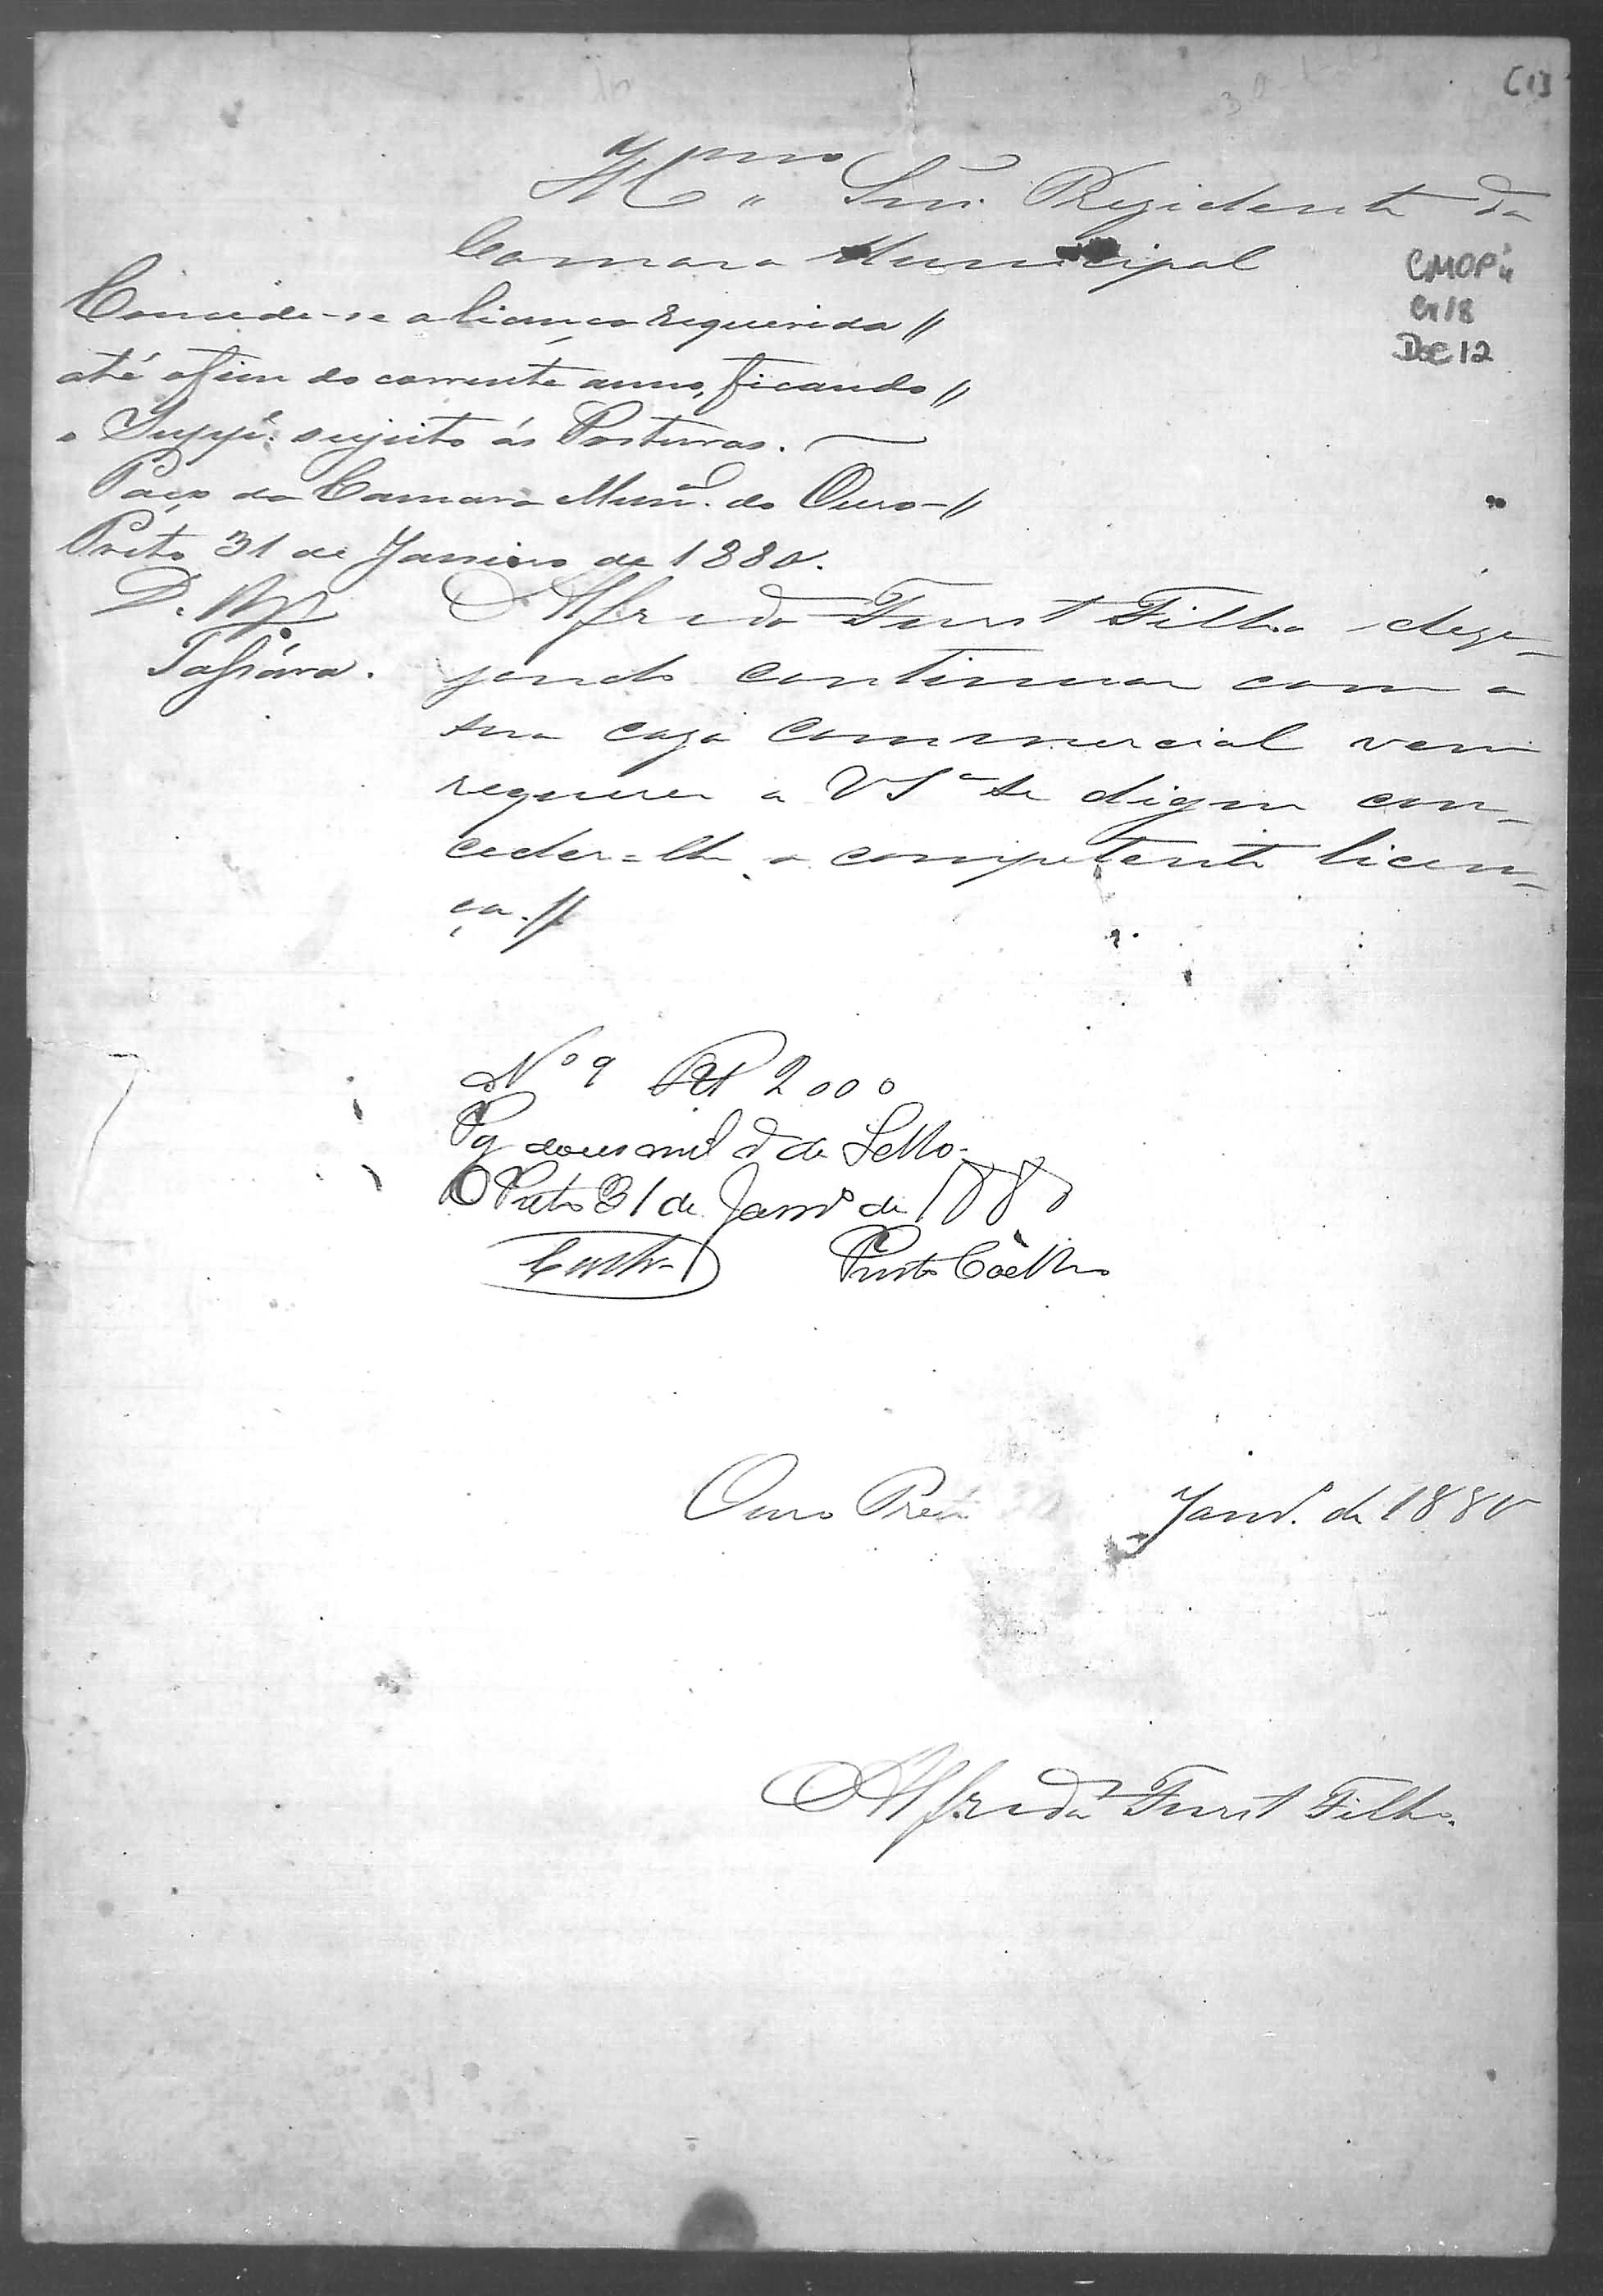 [1]
Illmo Snr. Prezidente da
Camara Municipal
CMOP
Cx 18
Doc 12
Concede-se a licença requerida //
até o fim do corrente anno, ficando //
o Suppe. sujeito ás Posturas.
Paço da Camara Munal. do Ouro- //
Preto 31 de Janeiro de 1880.
Alfredo Furst Filho, deze-
jando continuar com a
sua caza commercial vem
requerer a VSa se digne con-
ceder=lhe a competente licen-
ça. //
No 9 2000
Pg dous mil rs de Sello.
O Preto 31 de Janro de 1880
Castro Pinto Coelho
Ouro Preto Janro. de 1880
Alfredo Furst Filho.